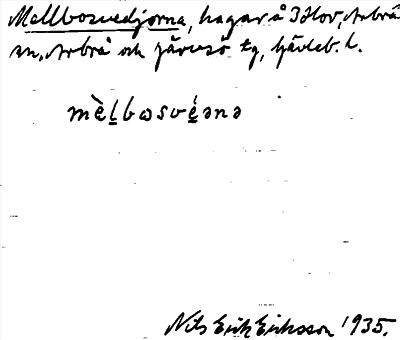 Mellbosvedjorna, hagar å 3 Hov, Arbrå
sn, Arbrå och Järvsö tg, Gävleb. l.
mèlbωsvéənə
Nils Erik Eriksson 1935.